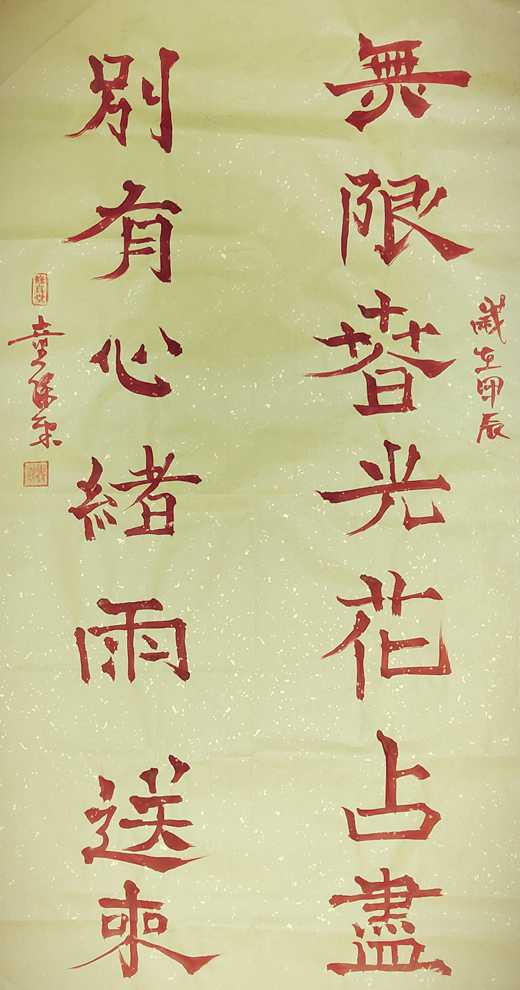 歲在甲辰
無限春光花占盡
別有心緒雨送來